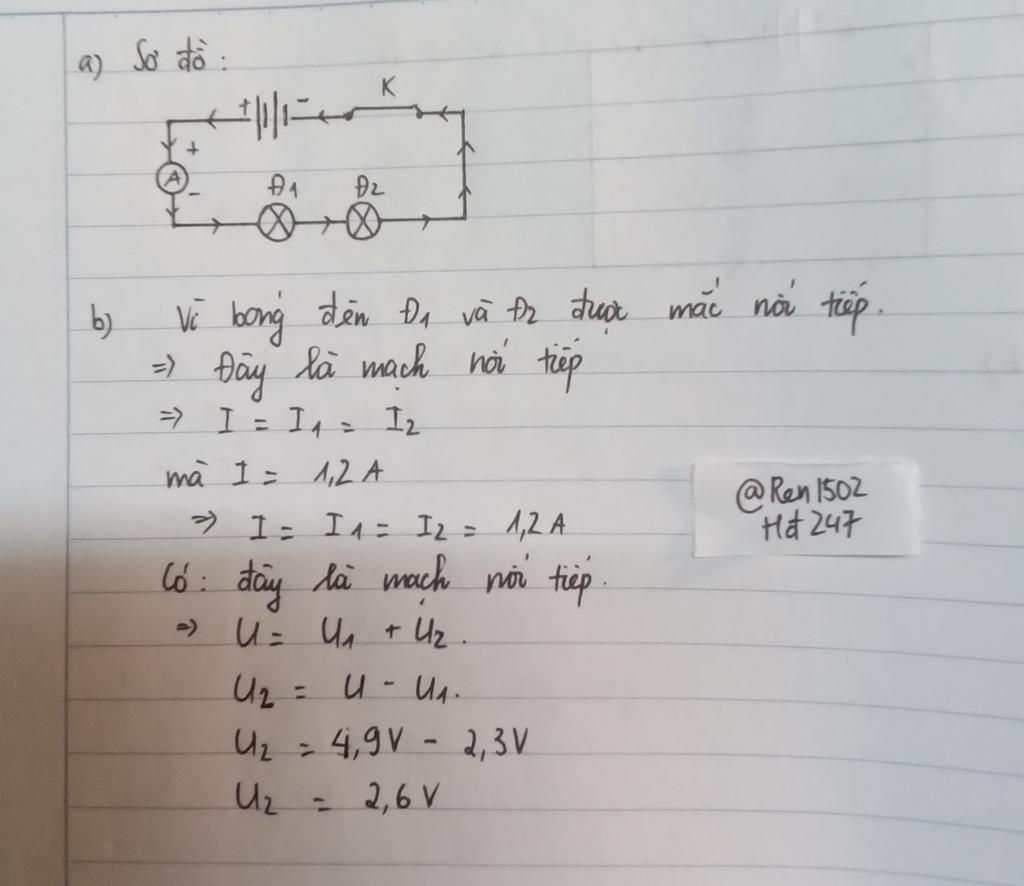 a) Sơ đồ:
K
+ -
+
A
-
Đ1 Đ2
b) Vì bóng đèn Đ1 và Đ2 được mắc nối tiếp.
=> Đây là mạch nối tiếp
=> I = I1 = I2
mà I = 1,2 A
=> I = I1 = I2 = 1,2 A
@Ren1502
Hđ 247
Có: đây là mạch nối tiếp.
=> U = U1 + U2.
U2 = U - U1.
U2 = 4,9V - 2,3V
U2 = 2,6 V